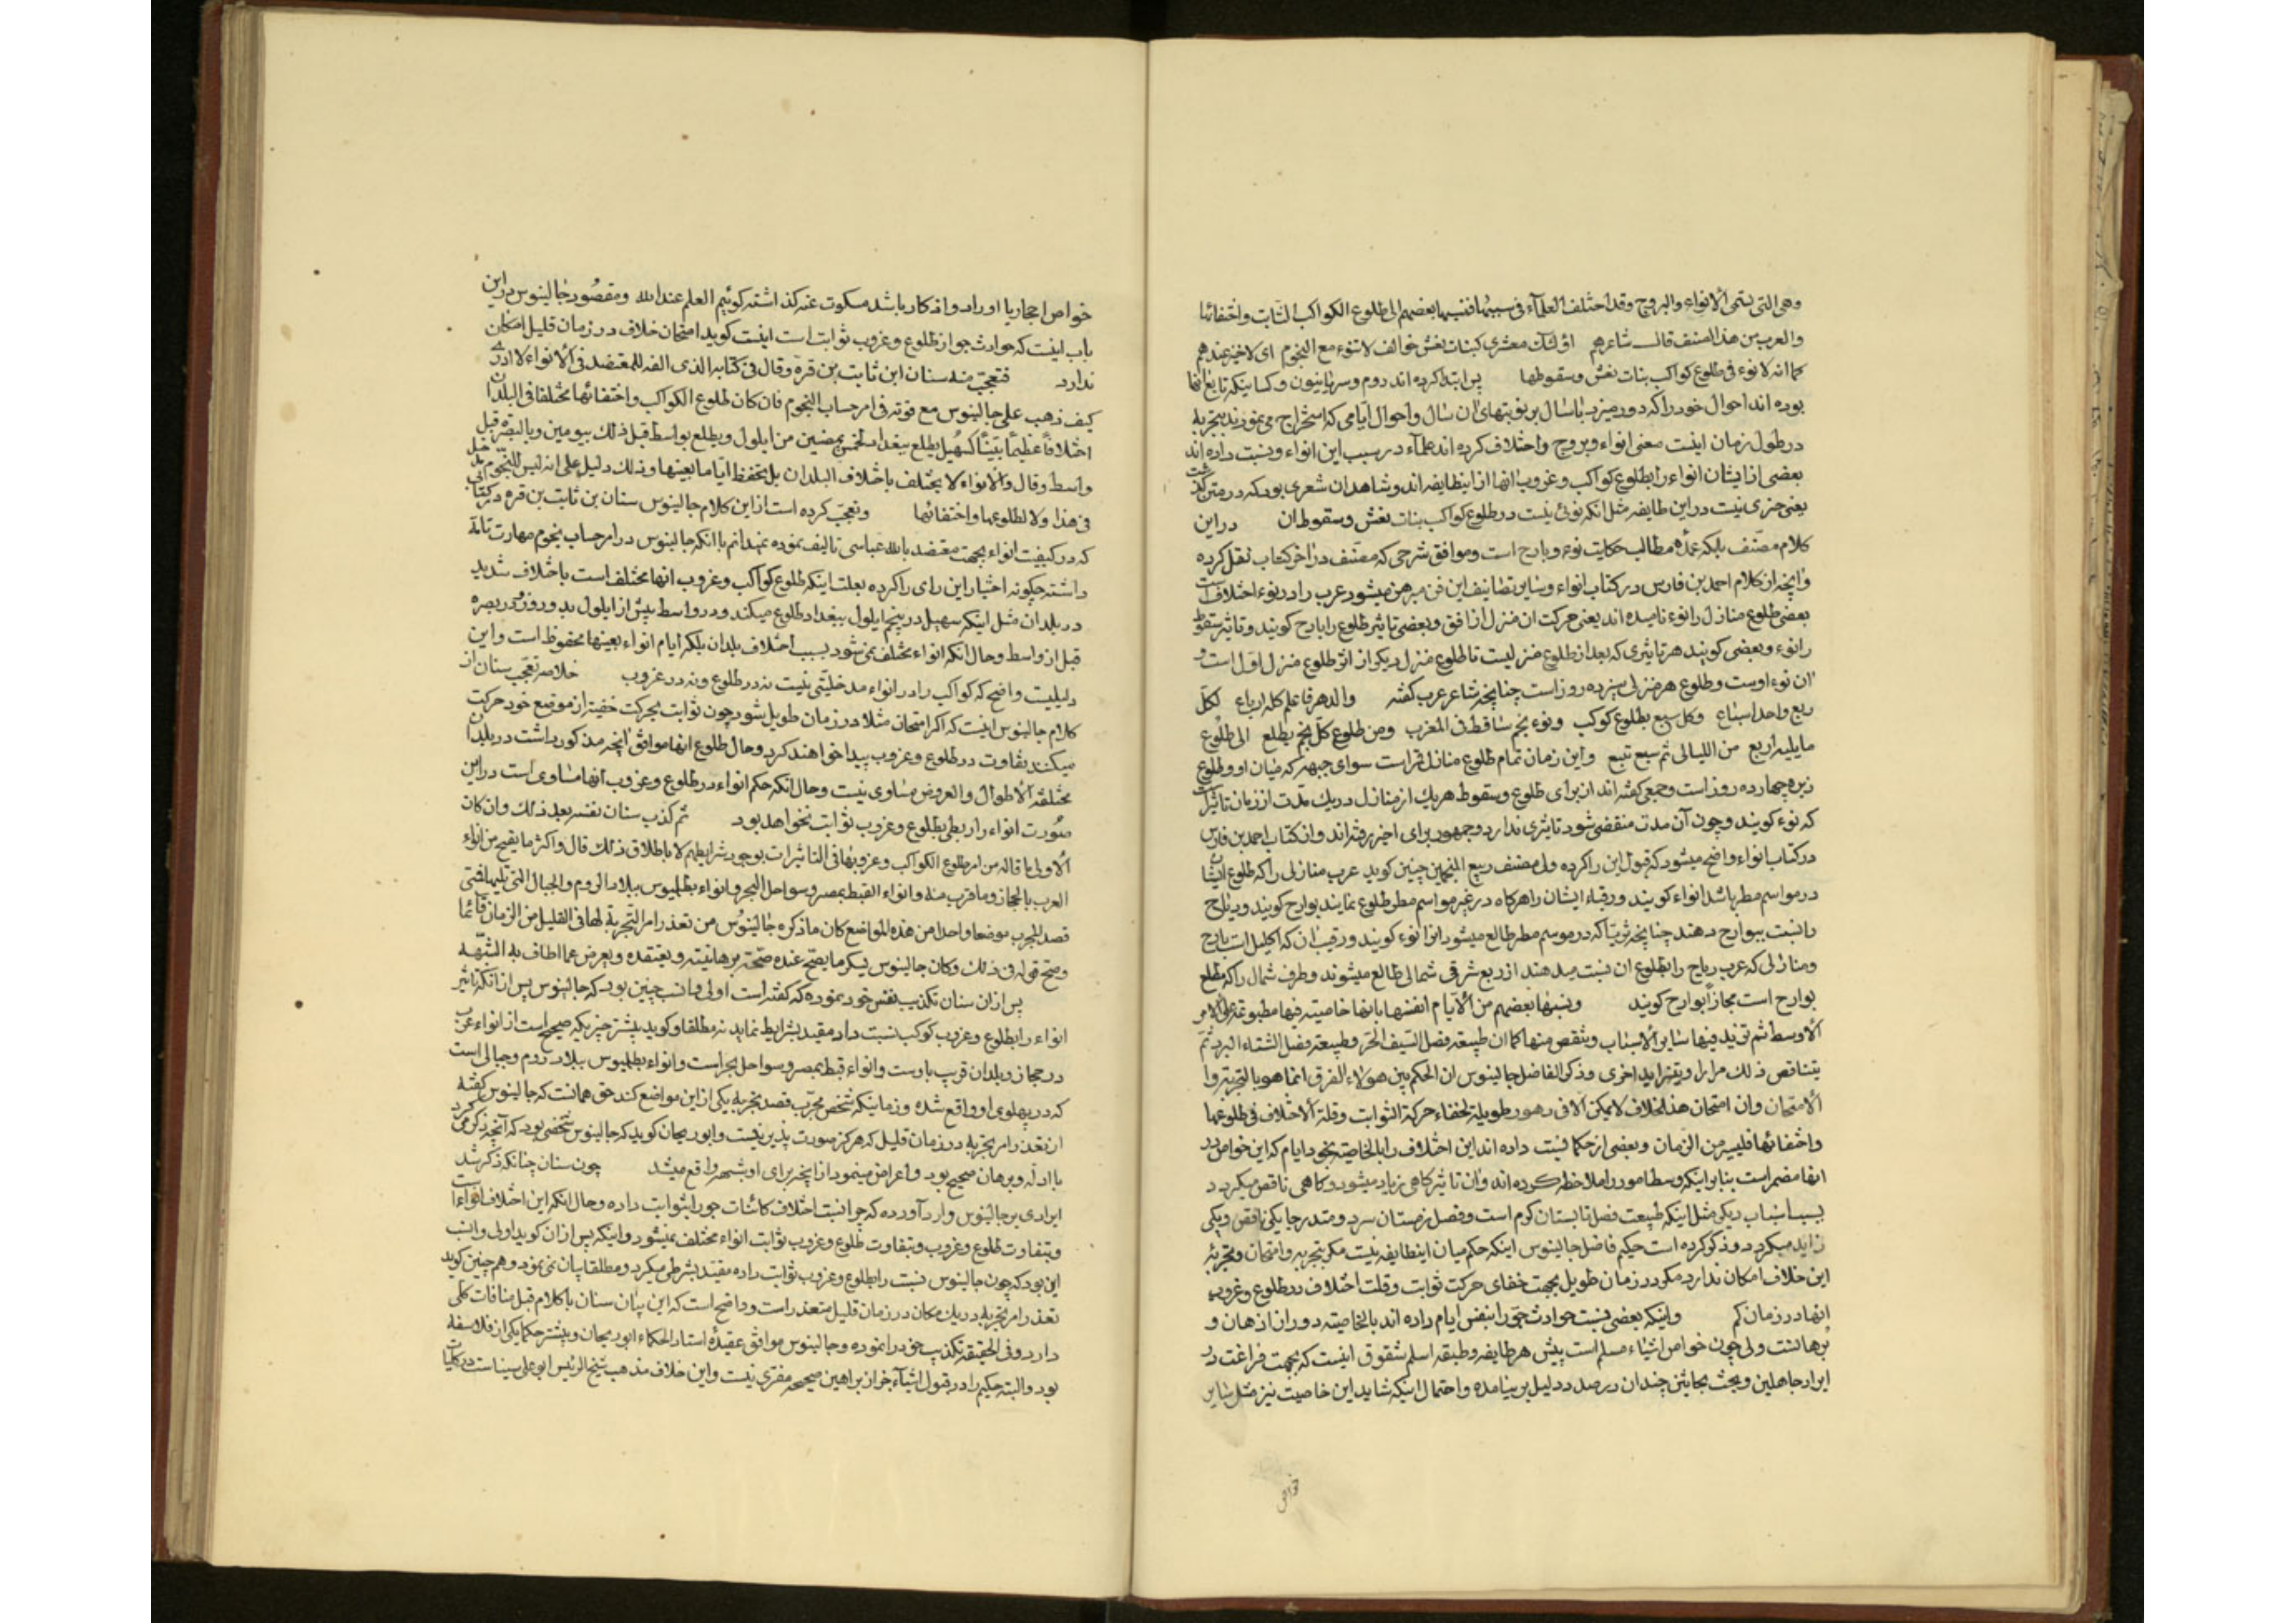 وهی التی تسمی الانواء والبروج وقد اختلف العلماء فی سببها فنسبها بعضهم الی طلوع الکواکب الثابت واختفائها
والعرب من هذا الصنف قال شاعرهم اولئک معشری کبنات نعش خوالف لا تنوء مع النجوم ای لا خیر عندهم
کما انه لا نوء فی طلوع کواکب بنات نعش وسقوطها پس ابتدا کرده اند روم وسریانیون وکسانیکه تابع انها
بوده اند احوال خود را که دور میزد با سال بر نوبتهای ان سال واحوال ایامی که استخراج می نمودند بتجربه
در طول زمان اینست معنی انواء وبروج واختلاف کرده اند علماء در سبب این انواء ونسبت داده اند
بعضی از ایشان انواء را بطلوع کواکب وغروب انها از اینطایفه اند وشاهد ان شعری بود که در متن گذشت
یعنی خیری نیست در این طایفه مثل انکه نوئی نیست در طلوع کواکب بنات نعش وسقوط ان در این
کلام مصنف بلکه عمده مطالب حکایت نوء وبارح است وموافق شرحی که مصنف در اخر کتاب نقل کرده
وانچه از کلام احمد بن فارس در کتاب انواء وسایر تصانیف این فن مبرهن میشود عرب را در نوء اختلاف است
بعضی طلوع منازل را نوء نامیده اند یعنی حرکت ان منزل از افق وبعضی تاثیر طلوع را بارح کویند وتاثیر سقوط
را نوء وبعضی کویند هر تاثیری که بعد از طلوع منزلیست تا طلوع منزل دیکر از اثر طلوع منزل اول است و
ان نوء اوست وطلوع هر منزلی سیزده روز است چنانچه شاعر عرب کفته والدهر فاعلم کله ارباع لکل
ربع واحد اسباع وکل سبع بطلوع کوکب ونوء نجم ساقط فی المغرب ومن طلوع کل نجم یطلع الی طلوع
ما یلیه اربع من اللیالی ثم سبع تتبع واین زمان تمام طلوع منازل قمر است سوای جبهه که میان او وطلوع
زبره چهارده روز است وجمعی کفته اند ان برای طلوع وسقوط هریک از منازل در یک مدت از زمان تاثیر است
که نوء کویند وچون آن مدت منقضی شود تاثیری ندارد وجمهور برای اخیر رفته اند وان کتاب احمد بن فارس
در کتاب انواء واضح میشود که قبول این را کرده ولی مصنف ربیع المنجمین چنین کوید عرب منازلی را که طلوع ایشان
در مواسم مطر باشد انواء کویند ورقباء ایشان را هرکاه در غیر مواسم مطر طلوع نمایند بوارح کویند وریاح
را نسبت ببوارح دهند چنانچه ثریا که در موسم مطر طالع میشود انرا نوء کویند ورقیب ان که اکلیل است بارح
ومنازلی که عرب ریاح را بطلوع ان نسبت میدهند از ربع شرقی شمالی طالع میشوند وطرف شمال را که مطلع
بوارح است مجازا بوارح کویند ونسبها بعضهم من الایام انفسها بانها خاصیته فیها مطبوعه علی الامر
الاوسط ثم تزید فیها سایر الاسباب وتنقص منها کما ان طبیعة فصل الصیف الحر وطبیعة فصل الشتاء البرد ثم
یتناقص ذلک مرارا ویتزاید اخری وذکر الفاضل جالینوس ان الحکم بین هولاء الفرق انما هو بالتجربة و
الامتحان وان امتحان هذا الخلاف لا یمکن الا فی دهور طویلة لخفاء حرکة الثوابت وقلة الاختلاف فی طلوعها
واختفائها فلیسیر من الزمان وبعضی از حکما نسبت داده اند این اختلاف را بالخاصیته بخود ایام که این خواص در
انها مضمر است بنابر اینکه وسط امور را ملاحظه کرده اند وان تاثیر کاهی زیاد میشود وکاهی ناقص میکردد
بسبب اسباب دیکر مثل اینکه طبیعت فصل تابستان کرم است وفصل زمستان سرد ومتدرجا یکی ناقص ویکی
زاید میکردد وذکر کرده است حکیم فاضل جالینوس اینکه حکم میان اینطایفه نیست مکر بتجربه وامتحان وتجربه
این خلاف امکان ندارد مکر در زمان طویل بجهت خفای حرکت ثوابت وقلت اختلاف در طلوع وغروب
انها در زمان کم واینکه بعضی نسبت حوادث جو را بنفس ایام داده اند بالخاصیته دور از اذهان و
برهانست ولی چون خواص اشیاء مسلم است پیش هر طایفه وطبقه اسلم شقوق اینست که بجهت فراغت در
ایراد جاهلین وبحث چندان در صدد دلیل بر نیامده واحتمال اینکه شاید این خاصیت نیز مثل سایر
خواص
خواص احجار یا اوراد واذکار باشد مسکوت عنه کذاشته کوئیم العلم عند الله ومقصود جالینوس در این
باب اینست که حوادث جو از طلوع وغروب ثوابت است اینست کوید امتحان خلاف در زمان قلیل امکان
ندارد فتعجب منه سنان ابن ثابت بن قرة وقال فی کتابه الذی الفه للمعتضد فی الانواء لا ادری
کیف ذهب علی جالینوس مع قوته فی امر حساب النجوم فان کان طلوع الکواکب واختفائها مختلفا فی البلدان
اختلافا عظیما بینا کسهیل یطلع ببغداد لخمس یمضین من ایلول ویطلع بواسط قبل ذلک بیومین وبالبصره قبل
واسط وقال والانواء لا یختلف باختلاف البلدان بل یحفظ ایاما بعینها وذلک دلیل علی انه لیس للنجوم مدخل
فی هذا ولا لطلوعها واختفائها وتعجب کرده است از این کلام جالینوس سنان بن ثابت بن قره در کتابی
که در کیفیت انواء بجهت معتضد بالله عباسی تالیف نموده نمیدانم با انکه جالینوس در امر حساب نجوم مهارت تامه
داشته چکونه اختیار این رای را کرده بعلت اینکه طلوع کواکب وغروب انها مختلف است باختلاف شدید
در بلدان مثل اینکه سهیل در پنجم ایلول ببغداد طلوع میکند ودر واسط پیش از ایلول بدو روز ودر بصره
قبل از واسط وحال انکه انواء مختلف نمی شود بسبب اختلاف بلدان بلکه ایام انواء بعینها محفوظ است واین
دلیلیت واضح که کواکب را در انواء مدخلیتی نیست نه در طلوع ونه در غروب خلاصه تعجب سنان از
کلام جالینوس اینست که اکر امتحان مثلا در زمان طویل شود چون ثوابت بحرکت خفیه از موقع خود حرکت
میکنند تفاوت در طلوع وغروب پیدا خواهند کرد وحال طلوع انها موافق انچه مذکور داشت در بلدان
مختلفة الاطوال والعروض مساوی نیست وحال انکه حکم انواء در طلوع وغروب انها مساوی است در این
صورت انواء را ربطی بطلوع وغروب ثوابت نخواهد بود ثم کذب سنان نفسه بعد ذلک وان کان
الاولی ما قاله من امر طلوع الکواکب وغروبها فی التاثیرات بوجود شرایطهم لا باطلاق ذلک قال واکثر ما یصح من انواء
العرب بالحجاز وما قرب منه وانواء القبط بمصر وسواحل البحر وانواء بطلمیوس ببلاد الروم والجبال التی تلیها فمتی
قصد المجرب موضعا واحدا من هذه المواضع کان ما ذکره جالینوس من تعذر امر التجربة لها فی القلیل من الزمان قائما
وصح قوله فی ذلک وکان جالینوس یذکر ما یصح عنده صحته برهانیته ویعتقده ویعرض عما اطاف به الشبهه
پس ازان سنان تکذیب نفس خود نموده که کفته است اولی وانسب چنین بود که جالینوس پس از انکه تاثیر
انواء را بطلوع وغروب کوکب نسبت داد مقید بشرایط نماید نه مطلقا وکوید بیشتر چیزیکه صحیح است از انواء عرب
در حجاز وبلدان قریب باوست وانواء قبط بمصر وسواحل بحر است وانواء بطلمیوس ببلاد روم وجبالی است
که در پهلوی او واقع شده وزمانیکه شخص مجرب قصد تجربه یکی از این مواضع کند حق همانست که جالینوس کفته
از تعذر امر تجربه در زمان قلیل که هرکز صورت پذیر نیست وابوریحان کوید که جالینوس شخصی بود که آنچه ذکر می کرد
با ادله وبرهان صحیح بود واعراض مینمود از انچه برای او شبهه واقع میشد چون سنان چنانکه ذکر شد
ایرادی بر جالینوس وارد آورده که چرا نسبت اختلاف کائنات جو را بثوابت داده وحال انکه این اختلاف انواء است
وبتفاوت طلوع وغروب وبتفاوت طلوع وغروب ثوابت انواء مختلف نمیشود واینکه پس ازان کوید اولی وانسب
این بود که چون جالینوس نسبت را بطلوع وغروب ثوابت داده مقید بشرطی میکرد ومطلقا بیان نمی نمود وهم چنین کوید
تعذر امر تجربه در یک مکان در زمان قلیل متعذر است وواضح است که این بیان سنان با کلام قبل منافات کلی
دارد وفی الحقیقه تکذیب خود را نموده وجالینوس موافق عقیده استاد الحکماء ابوریحان وبیشتر حکما یکی از فلاسفه
بود والبته حکیم را در قبول اشیاء جز از براهین صحیحه مفری نیست واین خلاف مذهب شیخ الرئیس ابوعلی سیناست در کلیات